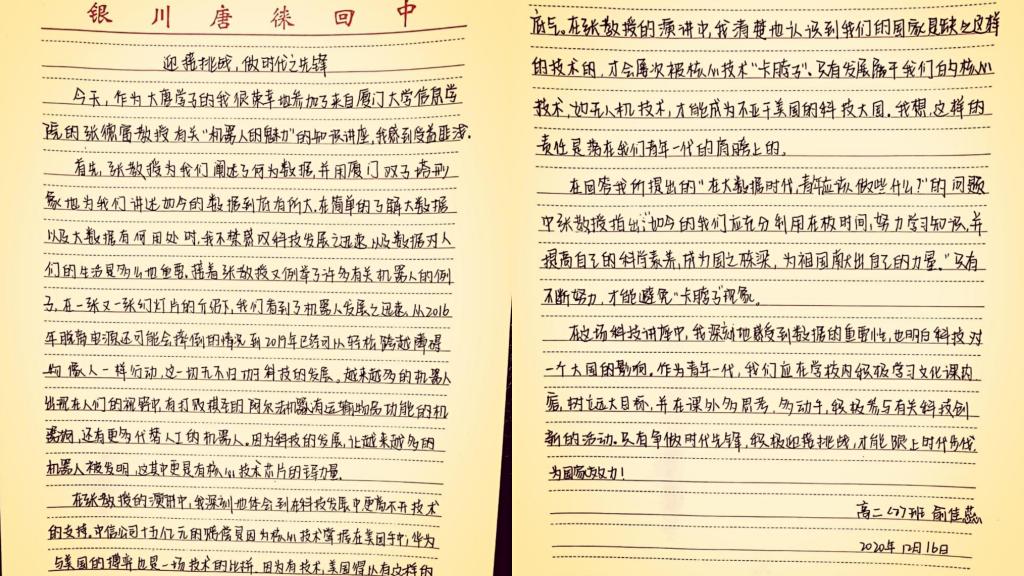 银川唐徕回中
迎接挑战，做时代之先锋
今天，作为大唐学子的我很荣幸地参加了来自厦门大学信息学
院的张德富教授有关"机器人的魅力"的知识讲座，我感到受益匪浅。
首先，张教授为我们阐述了何为数据，并用厦门双子塔形
象地为我们讲述如今的数据到底有所大，在简单的了解大数据
以及大数据有何用处时，我不禁感叹科技发展之迅速，以及数据对人
们的生活是多么地重要，接着张教授又例举了许多有关机器人的例
子，在一张又一张幻灯片的介绍下，我们看到了机器人发展之迅速，从2016
年脱离电源还可能会摔倒的情况到2019年已经可以轻松跨越障碍
物像人一样行动，这一切无不归功于科技的发展。越来越多的机器人
出现在人们的视野中，有打败棋王的阿尔法机器，有运输物品功能的机
器狗，还有更多代替人工的机器人。因为科技的发展，让越来越多的
机器人被发明，这其中更具有核心技术芯片的研力量。
在张教授的演讲中，我深刻地体会到在科技发展中更离不开技术
的支持，中信公司十五亿元的赔偿是因为核心技术掌握在美国手中，华为
与美国的博弈也是一场技术的比拼，因为有技术，美国得以有这样的
底气。在张教授的演讲中，我清楚地认识到我们的国家是缺乏这样
的技术的，才会屡次被核心技术"卡脖子"。只有发展属于我们的核心
技术，如无人机技术，才能成为不亚于美国的科技大国。我想，这样的
责任是落在我们青年一代的肩膀上的。
在回答我所提出的"在大数据时代，青年应该做些什么？"的问题
中张教授指出："如今的我们应充分利用在校时间，努力学习知识，并
提高自己的科学素养，成为国之栋梁，为祖国献出自己的力量。"只有
不断努力，才能避免"卡脖子"现象。
在这场科技讲座中，我深刻地感受到数据的重要性，也明白科技对
一个大国的影响。作为青年一代，我们应在学校内积极学习文化课内
容，树远大目标，并在课外多思考，多动手，积极参与有关科技创
新的活动。只有争做时代先锋，积极迎接挑战，才能跟上时代步伐，
为国家效力！
高二（7）班 俞佳蕊
2020年12月16日